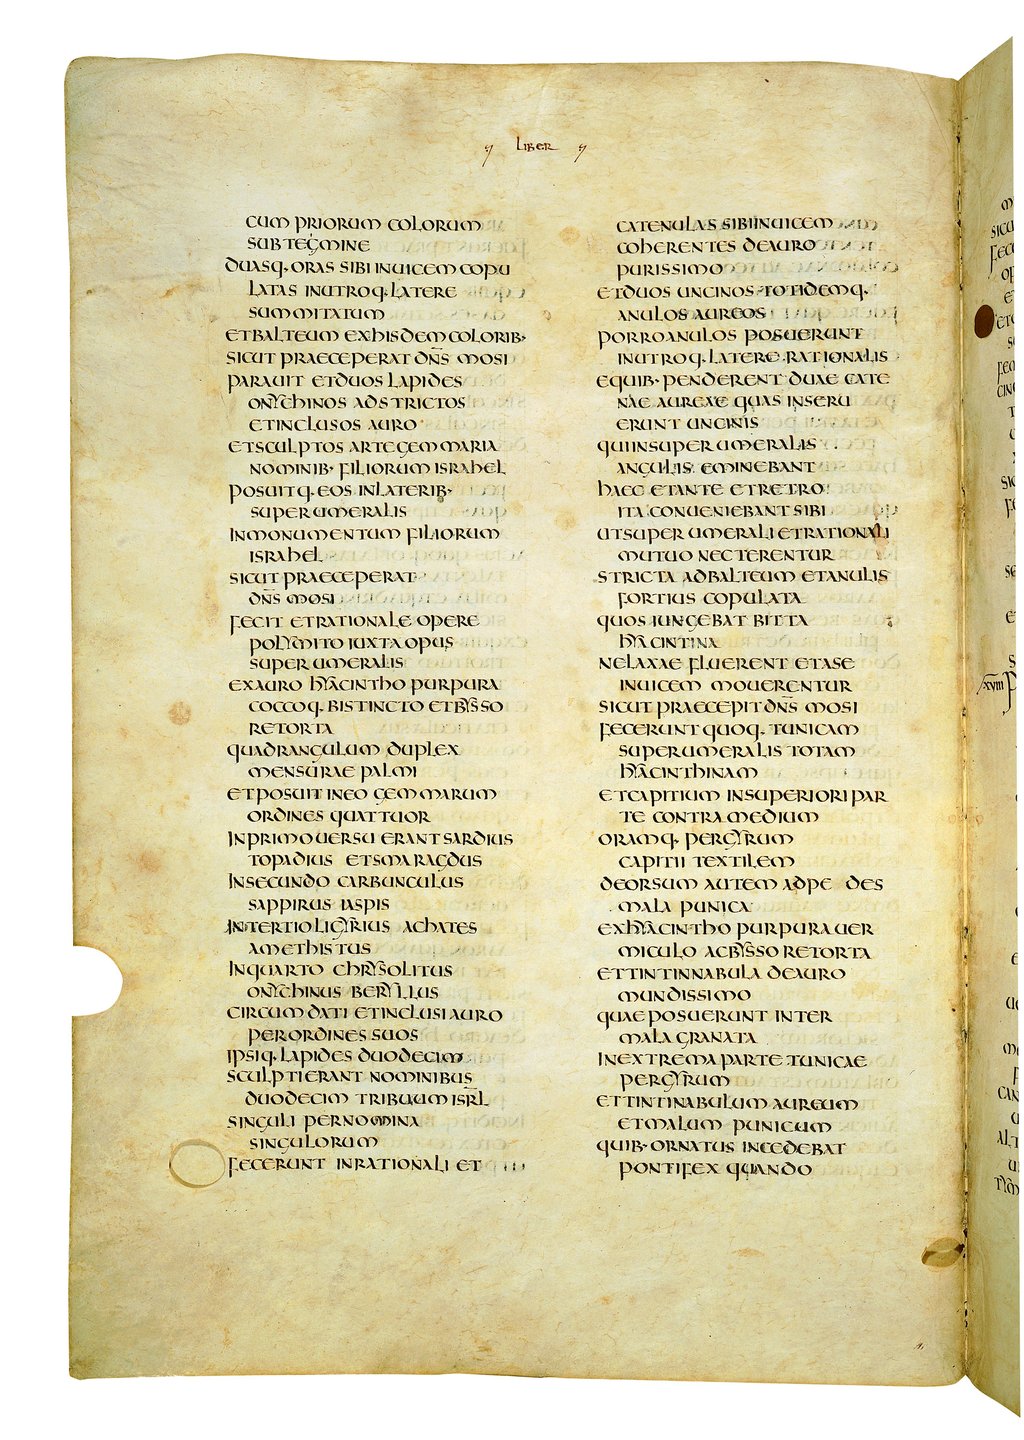 LIBER
CUM PRIORUM COLORUM
SUBTEGMINE
DUASQ· ORAS SIBI INUICEM COPU
LATAS INUTROQ· LATERE
SUMMITATUM
ET BALTEUM EX HISDEM COLORIB·
SICUT PRAECEPERAT DN̅S MOSI
PARAUIT ET DUOS LAPIDES
ONYCHINOS ADSTRICTOS
ET INCLUSOS AURO
ET SCULPTOS ARTE GEMMARIA
NOMINIB· FILIORUM ISRAHEL
POSUITQ· EOS IN LATERIB·
SUPERUMERALIS
IN MONUMENTUM FILIORUM
ISRAHEL
SICUT PRAECEPERAT
DN̅S MOSI
FECIT ET RATIONALE OPERE
POLYMITO IUXTA OPUS
SUPERUMERALIS
EX AURO HYACINTHO PURPURA
COCCOQ· BIS TINCTO ET BYSSO
RETORTA
QUADRANGULUM DUPLEX
MENSURAE PALMI
ET POSUIT IN EO GEMMARUM
ORDINES QUATTUOR
IN PRIMO UERSU ERANT SARDIUS
TOPADIUS ET SMARAGDUS
IN SECUNDO CARBUNCULUS
SAPPIRUS IASPIS
IN TERTIO LIGYRIUS ACHATES
AMETHISTUS
IN QUARTO CHRYSOLITUS
ONYCHINUS BERYLLUS
CIRCUMDATI ET INCLUSI AURO
PER ORDINES SUOS
IPSIQ· LAPIDES DUODECIM
SCULPTI ERANT NOMINIBUS
DUODECIM TRIBUUM ISR̅L
SINGULI PER NOMINA
SINGULORUM
FECERUNT IN RATIONALI ET
CATENULAS SIBI INUICEM
COHERENTES DE AURO
PURISSIMO
ET DUOS UNCINOS TOTIDEMQ·
ANULOS AUREOS
PORRO ANULOS POSUERUNT
IN UTROQ· LATERE RATIONALIS
E QUIB· PENDERENT DUAE CATE
NAE AUREAE QUAS INSERU
ERUNT UNCINIS
QUI IN SUPERUMERALIS
ANGULIS EMINEBANT
HAEC ET ANTE ET RETRO
ITA CONUENIEBANT SIBI
UT SUPERUMERALI ET RATIONALI
MUTUO NECTERENTUR
STRICTA AD BALTEUM ET ANULIS
FORTIUS COPULATA
QUOS IUNGEBAT BITTA
HYACINTINA
NE LAXAE FLUERENT ET ASE
INUICEM MOUERENTUR
SICUT PRAECEPIT DN̅S MOSI
FECERUNT QUOQ· TUNICAM
SUPERUMERALIS TOTAM
HYACINTHINAM
ET CAPITIUM IN SUPERIORI PAR
TE CONTRA MEDIUM
ORAMQ· PER GYRUM
CAPITII TEXTILEM
DEORSUM AUTEM AD PEDES
MALA PUNICA
EX HYACINTHO PURPURA UER
MICULO AC BYSSO RETORTA
ET TINTINNABULA DE AURO
MUNDISSIMO
QUAE POSUERUNT INTER
MALA GRANATA
IN EXTREMA PARTE TUNICAE
PER GYRUM
ET TINTINABULUM AUREUM
ET MALUM PUNICUM
QUIB· ORNATUS INCEDEBAT
PONTIFEX QUANDO